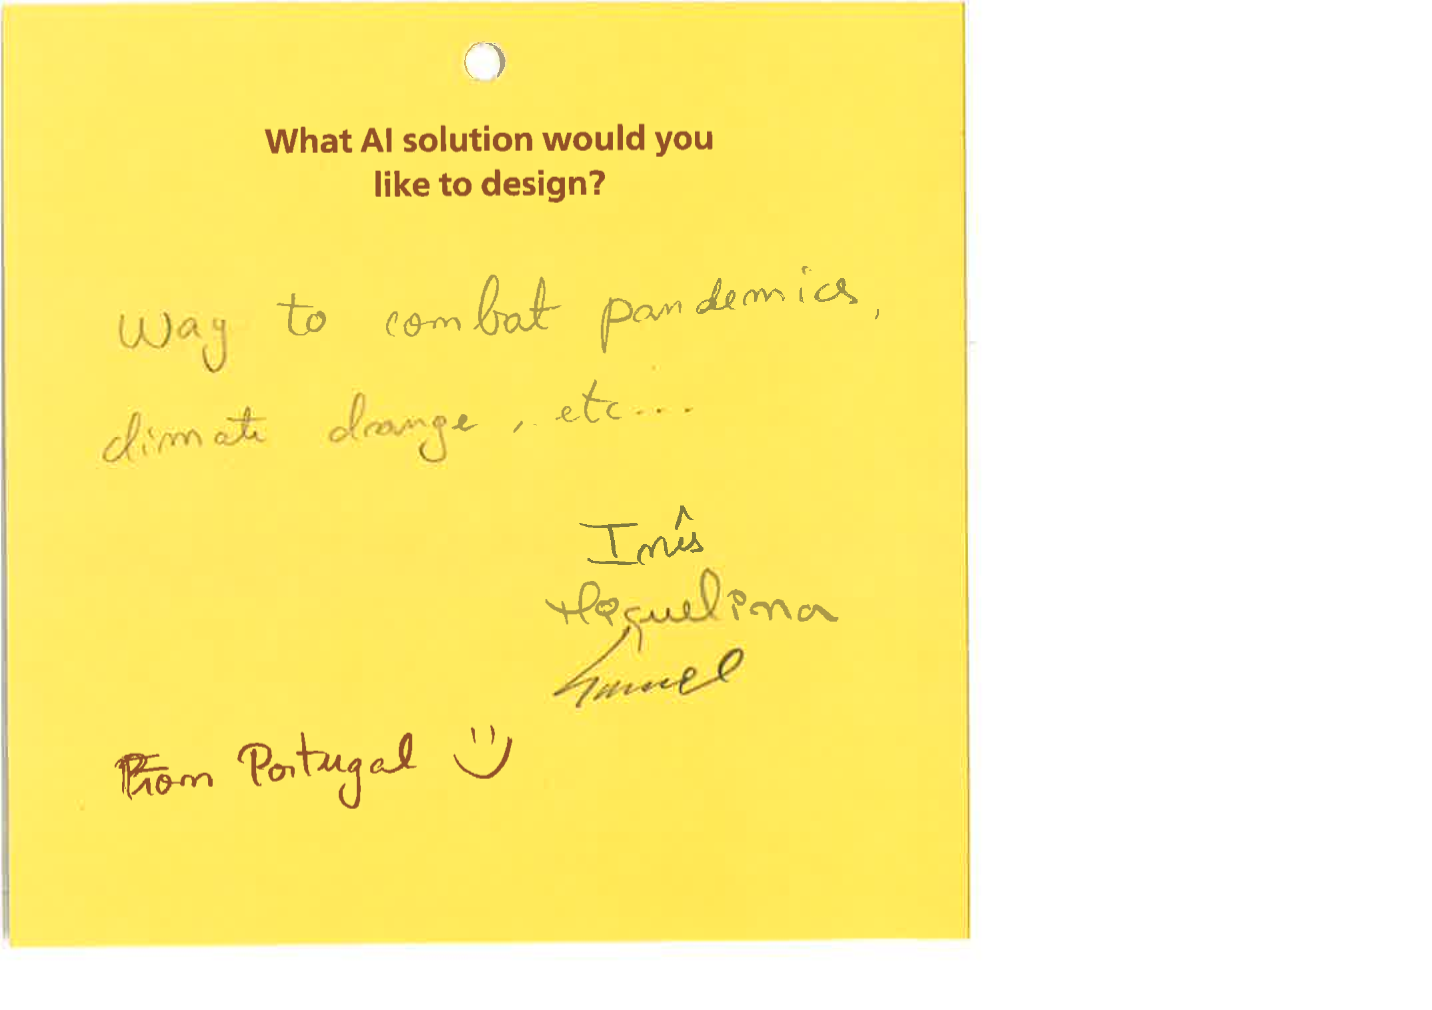 What AI solution would you
like to design?
Way to combat pandemics,
climate change, etc...
Inês
Samuel
From Portugal